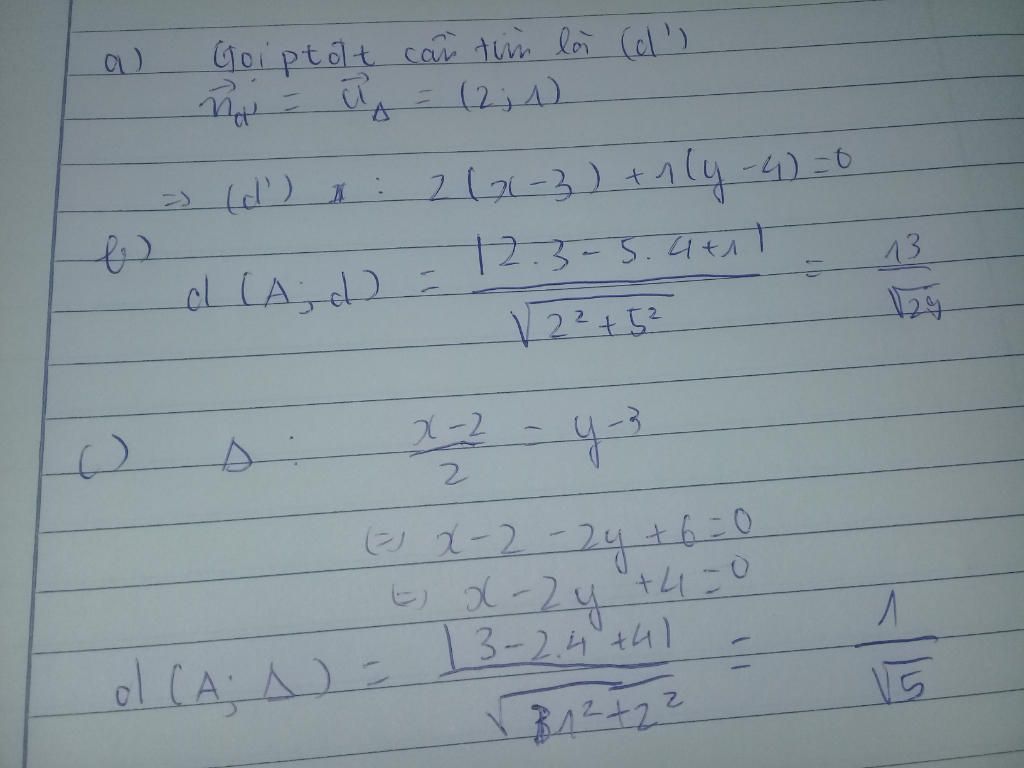 a) Gọi ptđt cần tìm là (d')
n⃗d' = u⃗Δ = (2; 1)
=> (d') : 2(x-3) + 1(y-4) = 0
b)
d(A; d) = |2.3 - 5.4 + 1| / √(2² + 5²) = 13/√29
c) Δ : (x-2)/2 = y-3
(=) x - 2 - 2y + 6 = 0
(=) x - 2y + 4 = 0
d(A; Δ) = |3 - 2.4 + 4| / √(1² + 2²) = 1/√5